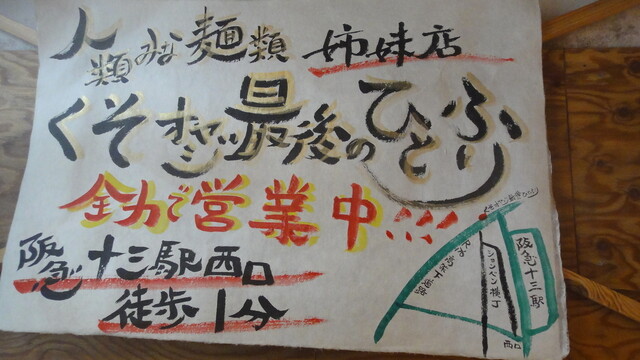 人類みな麺類 姉妹店
くそオヤジ最後のひとふり
全力で営業中!!!!
阪急 十三駅西口
徒歩1分
阪急十三駅
ションベン横丁
西口